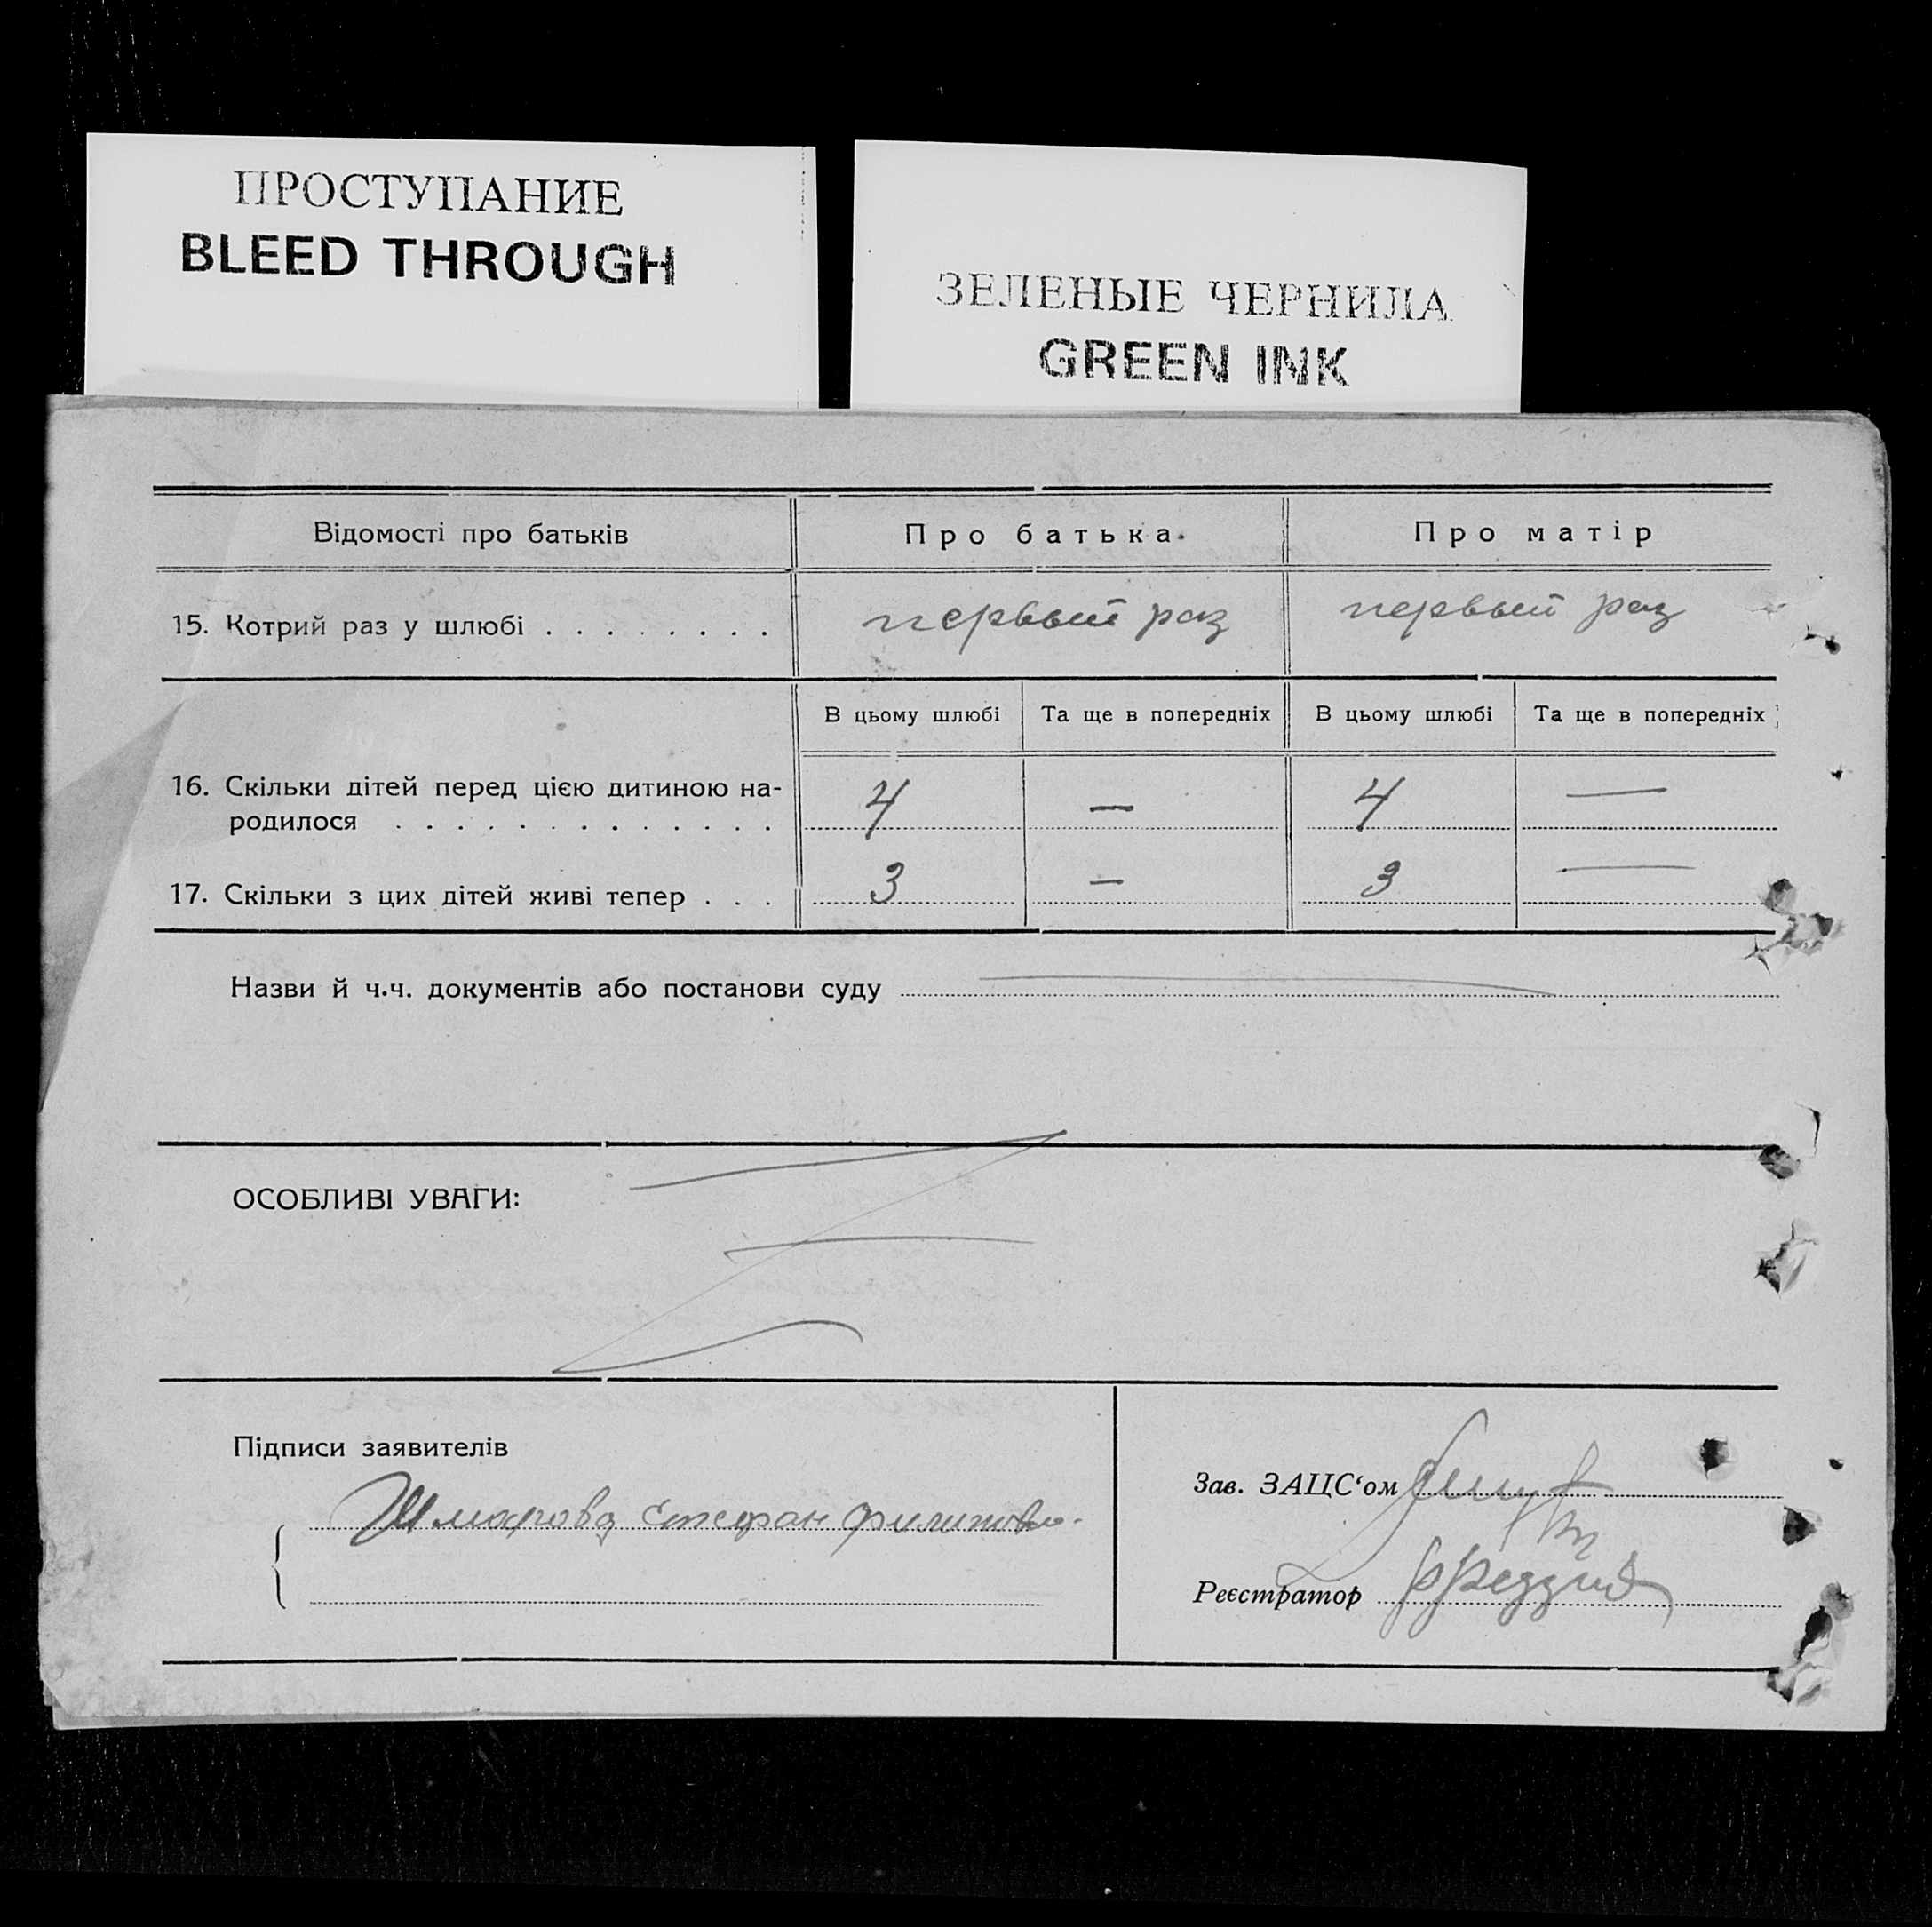 ПРОСТУПАНИЕ
BLEED THROUGH
ЗЕЛЕНЫЕ ЧЕРНИЛА
GREEN INK
Відомості про батьків Про батька Про матір
15. Котрий раз у шлюбі первый раз первый раз
В цьому шлюбі Та ще в попередніх В цьому шлюбі Та ще в попередніх
16. Скільки дітей перед цією дитиною на-
родилося 4 — 4 —
17. Скільки з цих дітей живі тепер 3 — 3 —
Назви й ч.ч. документів або постанови суду
ОСОБЛИВІ УВАГИ:
Підписи заявителів
Зав. ЗАЦС‘ом
Реєстратор